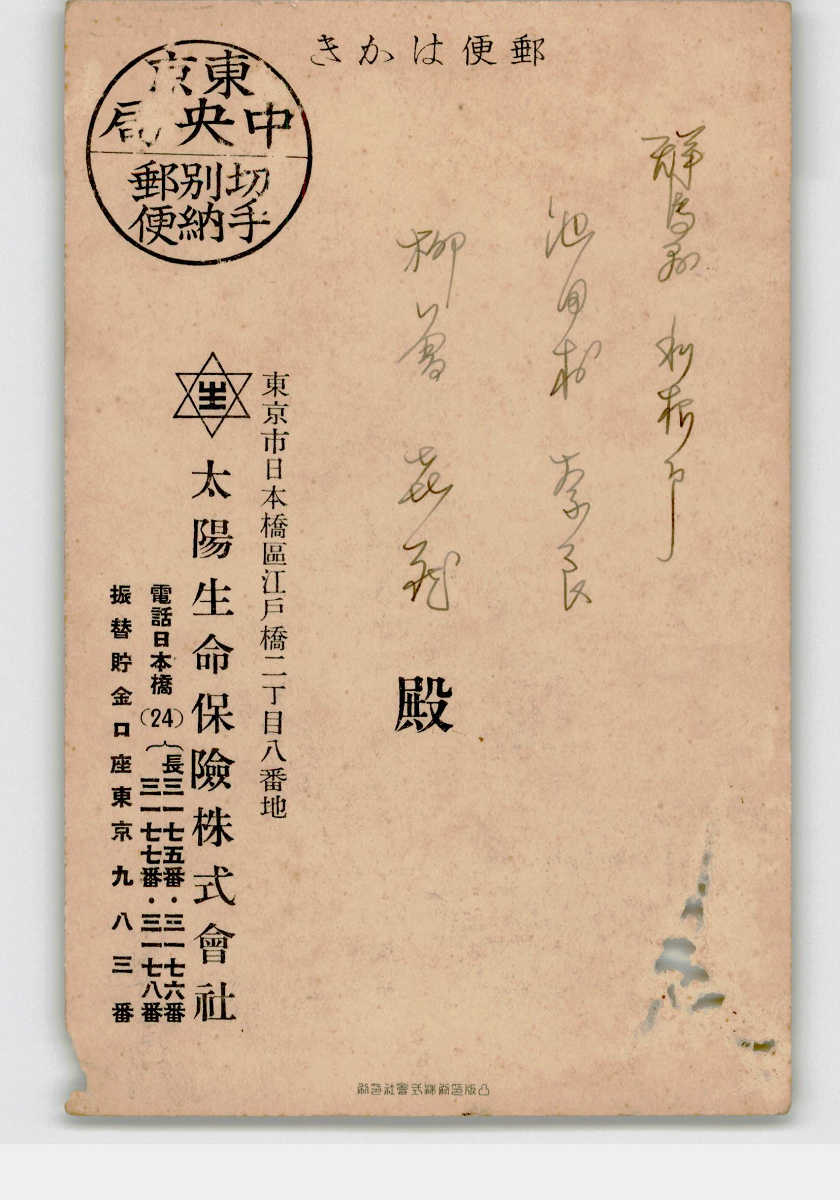 郵便はかき
東京
中央局
切手
別納
郵便
群馬縣 利根郡
池田村 奈良
柳 喜
殿
東京市日本橋區江戸橋二丁目八番地
生
太陽生命保險株式會社
電話日本橋(24)
長三一七五番・三一七六番
三一七七番・三一七八番
振替貯金口座東京九八三番
凸版印刷株式會社印刷